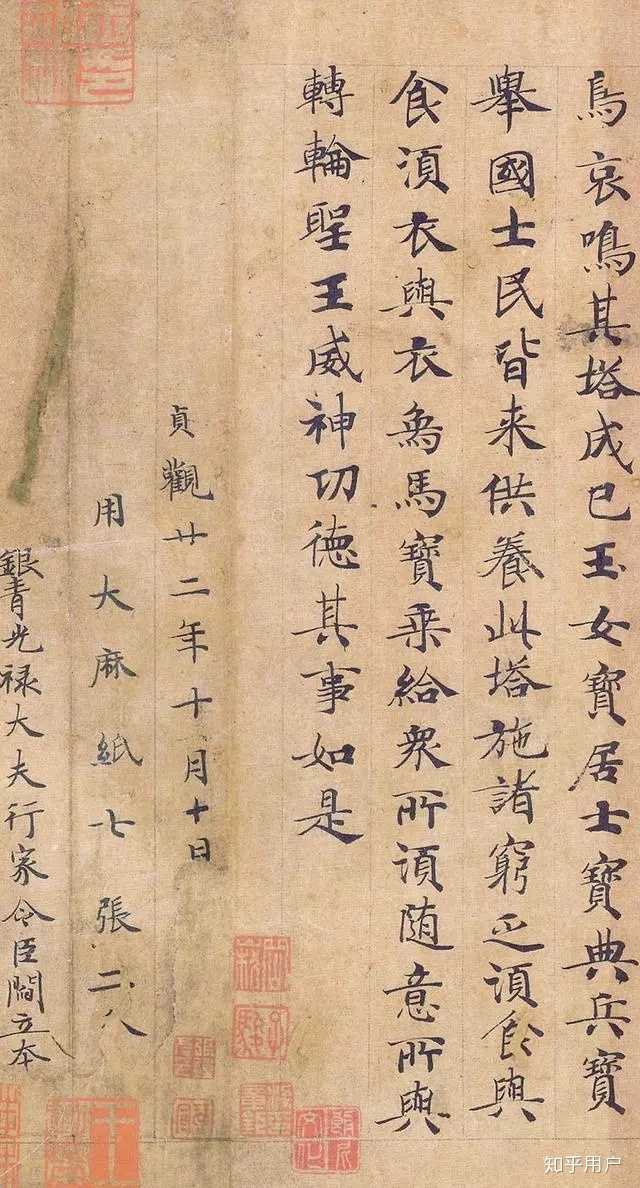 鳥哀鳴其塔成已玉女寳居士寳典兵寳
舉國士民皆来供養此塔施諸窮乏須食與
食須衣與衣象馬寳乗給衆所須随意所與
轉輪聖王威神功德其事如是
貞觀廿二年十月十日
用大麻紙七張二分
銀青光禄大夫行家令臣閻立本
知乎用户